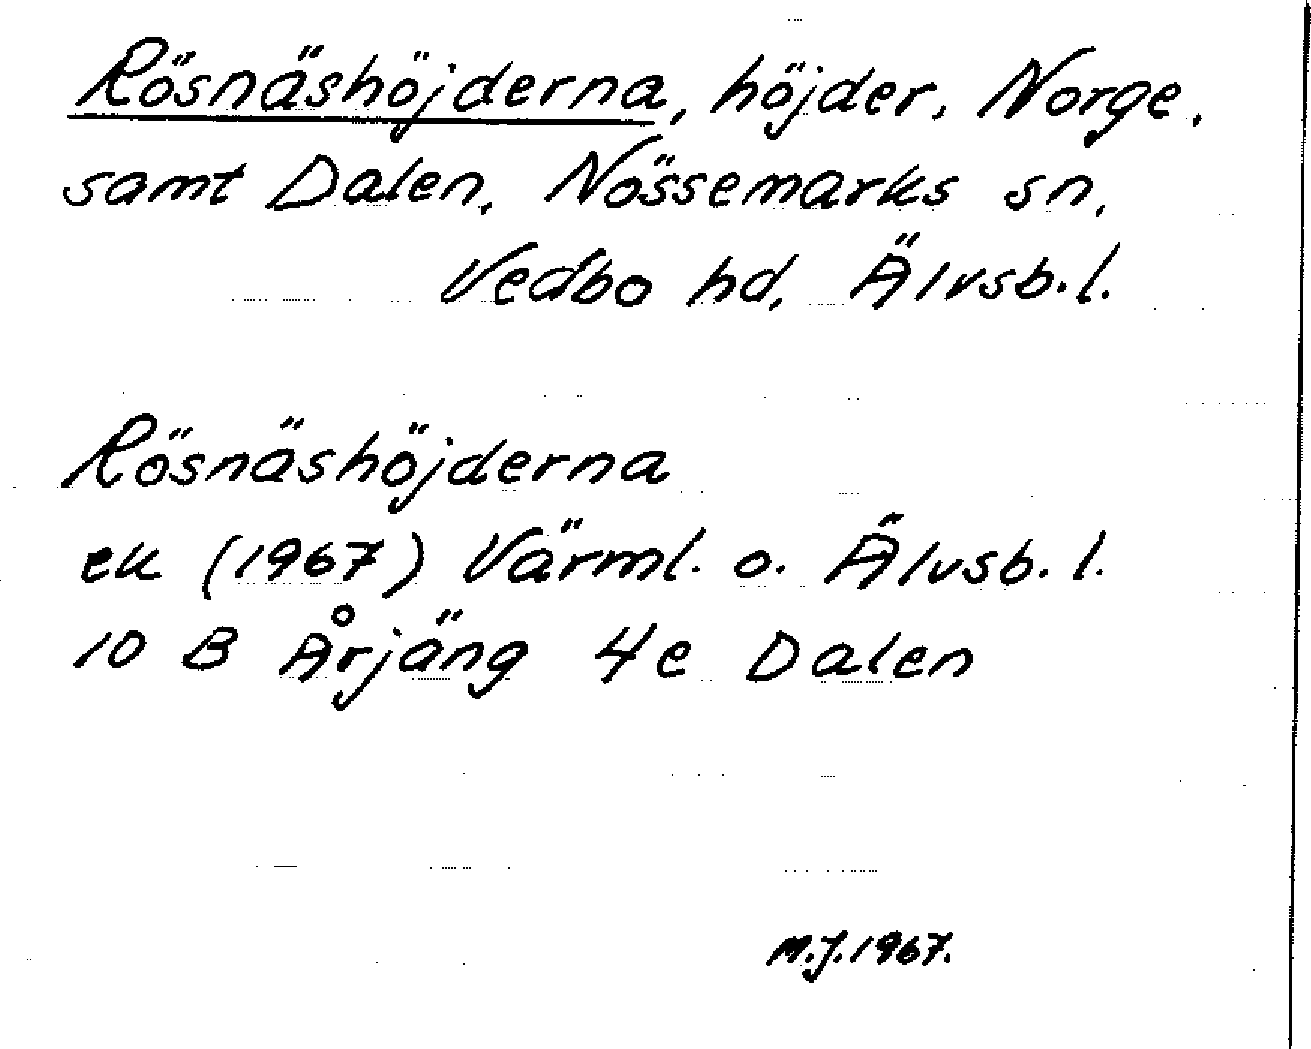 Rösnäshöjderna, höjder, Norge,
samt Dalen, Nössemarks sn,
Vedbo hd, Älvsb. l.
Rösnäshöjderna
ek (1967) Värml. o. Älvsb. l.
10 B Årjäng 4e Dalen
M.J. 1967.